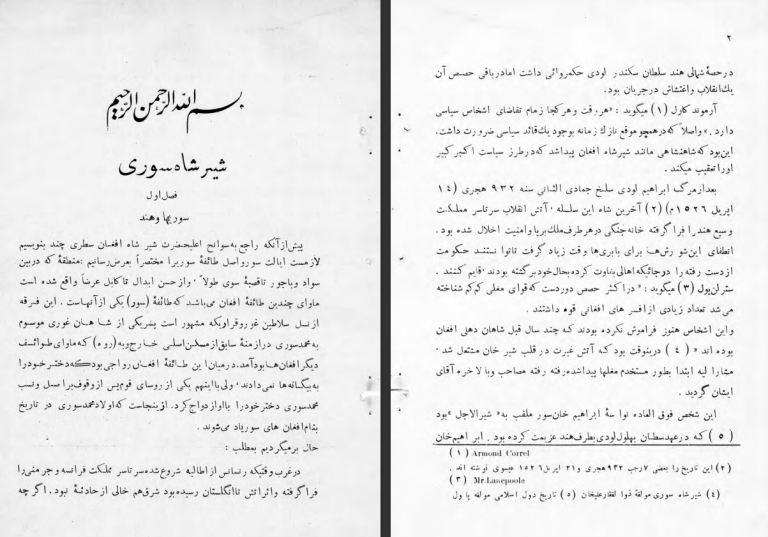 بسم الله الرحمن الرحیم
شیر شاه سوری
فصل اول
سوریها و هند
پیش از آنکه راجع به سوانح اعلیحضرت شیر شاه افغان سطری چند بنویسیم
لازمست ایالت سور و اصل طائفۀ سوریرا مختصراً بعرض رسانیم : منطقۀ که در بین
سواد و باجور تا قصبۀ سوی طولاً ' و از حسن ابدال تا کابل عرضاً واقع شده است
ماوای چندین طائفۀ افغان می باشد که طائفۀ (سور) یکی از آنهاست . این فرقه
از نسل سلاطین غور و قرار یکه مشهور است پسر یکی از شاهان غوری موسوم
به محمد سوری در ازمنۀ سابق از مسکن اصلی خارج و به (روه) که ماوای طوائف
دیگر افغان ها بود آمد . در میان این طائفۀ افغان رواجی بود که دختر خود را
به بیگانه ها نمی دادند ' ولی با اینهم یکی از روسای قوم پس از وقوف بر اصل و نسب
محمد سوری دختر خود را با او ازدواج کرد . از ینجاست که اولاد محمد سوری در تاریخ
بنام افغان های سور یاد می شوند .
حال بر میگردیم بمطلب :
در غرب وقتیکه رنسانس از ایطالیه شروع شده سر تاسر مملکت فرانسه و جرمنی را
فرا گرفته و اثر اتش تا انگلستان رسیده بود شرق هم خالی از حادثۀ نبود . اگر چه
۲
در حصۀ شمالی هند سلطان سکندر لودی حکمروائی داشت اما در باقی حصص آن
یك انقلاب و اغتشاش در جریان بود.
آرموند کارل (۱) میگوید : «هر وقت و هر کجا زمام تقاضای اشخاص سیاسی
دارد . » و اصلاً که در همچو موقع نازك زمانه بوجود یك قائد سیاسی ضرورت داشت.
این بود که شاهنشاهی مانند شیر شاه افغان پیدا شد که در طرز سیاست اکبر کبیر
او را تعقیب میکند .
بعد از مرگ ابراهیم لودی سلخ جمادی الثانی سنه ۹۳۲ هجری (۱٤
اپریل ۱٥۲٦م) (۲) آخرین شاه این سلسله ' آتش انقلاب سر تاسر مملکت
وسیع هند را فرا گرفته خانه جنگی در هر طرف ملك بر پا و امنیت اخلال شده بود .
انطفای این شورش ها برای بابری ها وقت زیاد گرفت تا توانستند حکومت
از دست رفته را دو جائیکه اهالی بغاوت کرده بحال خود بر گشته بودند ' قایم کنند .
سترلن پول (۳) میگوید : « در اکثر حصص دور دست که قوای مغلی کم کم شناخته
می شد تعداد زیادی از افسر های افغانی قوه داشتند .
و این اشخاص هنوز فراموش نکرده بودند که چند سال قبل شاهان دهلی افغان
بوده اند » (٤) در ینوقت بود که آتش غیرت در قلب شیر خان مشتعل شد '
مشار الیه ابتدا بطور مستخدم مغلها پیدا شده رفته رفته مصاحب و بالاخره آقای
ایشان گردید .
این شخص فوق العاده نواسۀ ابراهیم خان سور ملقب به « شیر الاجل » بود
(٥) که در عهد سلطان بهلول لودی بطرف هند عزیمت کرده بود . ابراهیم خان
(۱) Armond Correl
(۲) این تاریخ را بعضی ۷ رجب ۹۳۲ هجری و ۲۱ اپریل ۱٥۲٦ عیسوی نوشته اند .
(۳) Mr. Lanepoole
(٤) شیر شاه سوری مولفۀ ذوا لفقار علیخان (٥) تاریخ دول اسلامی مولفه پا ول